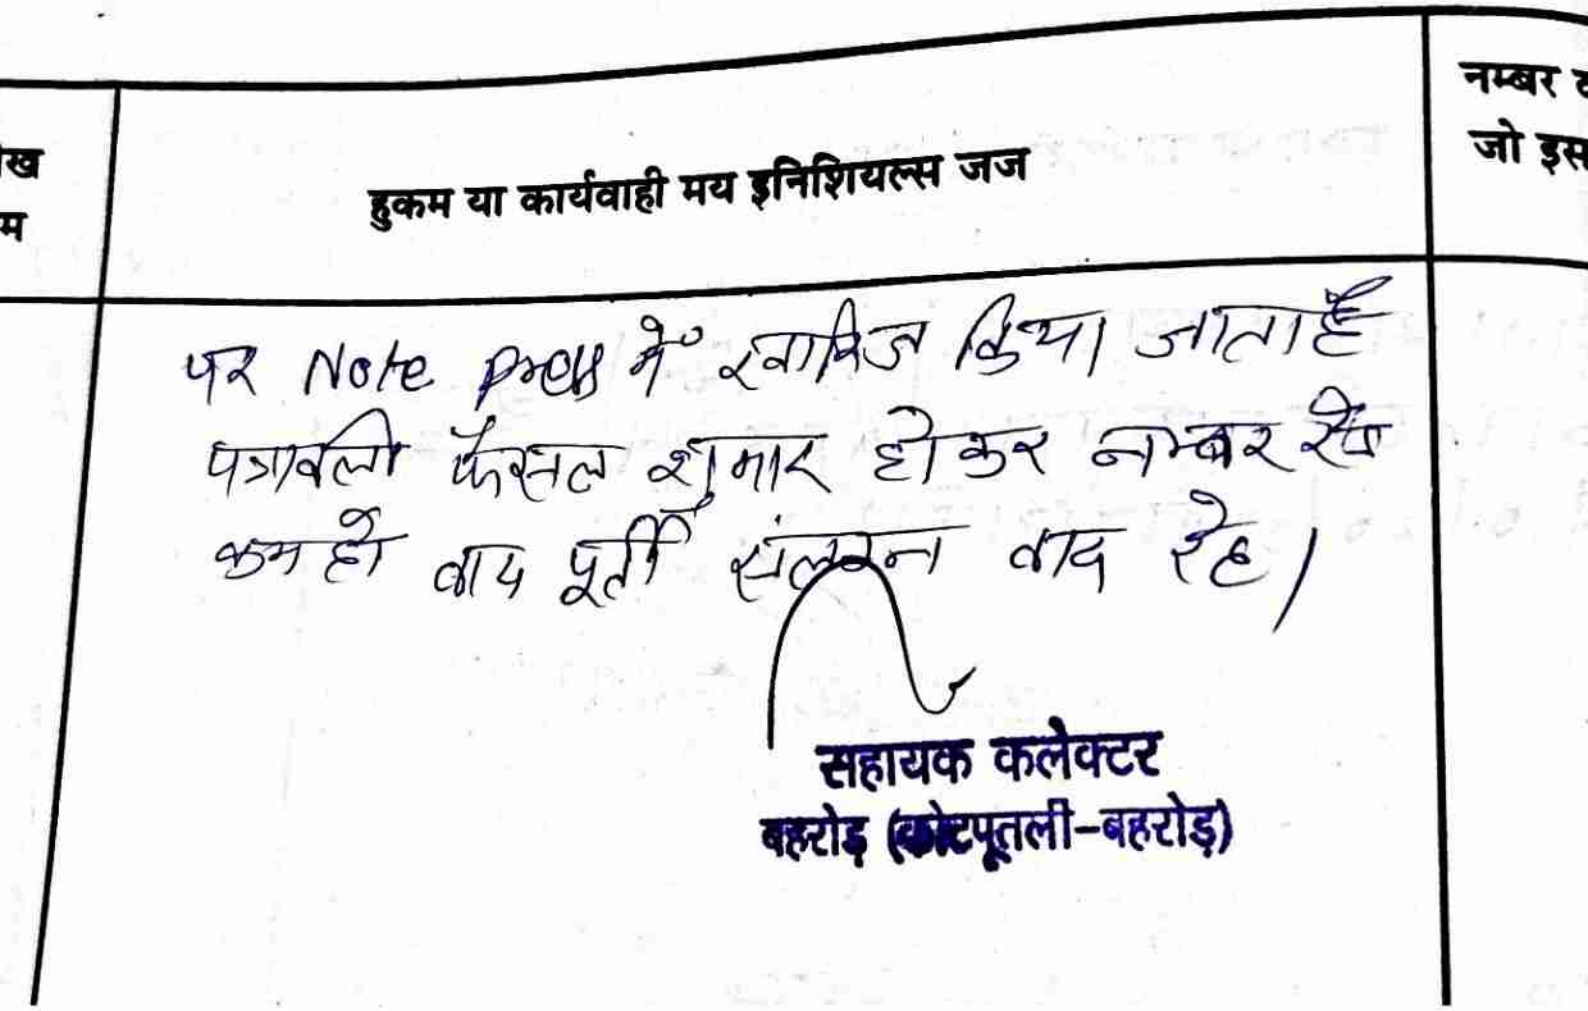 नम्बर
जो इस
हुकम या कार्यवाही मय इनिशियल्स जज
पर Note press में खारिज किया जाता है
पत्रावली फैसल शुमार होकर नम्बर से
कम हो बाद पूर्ती संलग्न वाद रहे।
सहायक कलेक्टर
बहरोड़ (कोटपूतली-बहरोड़)